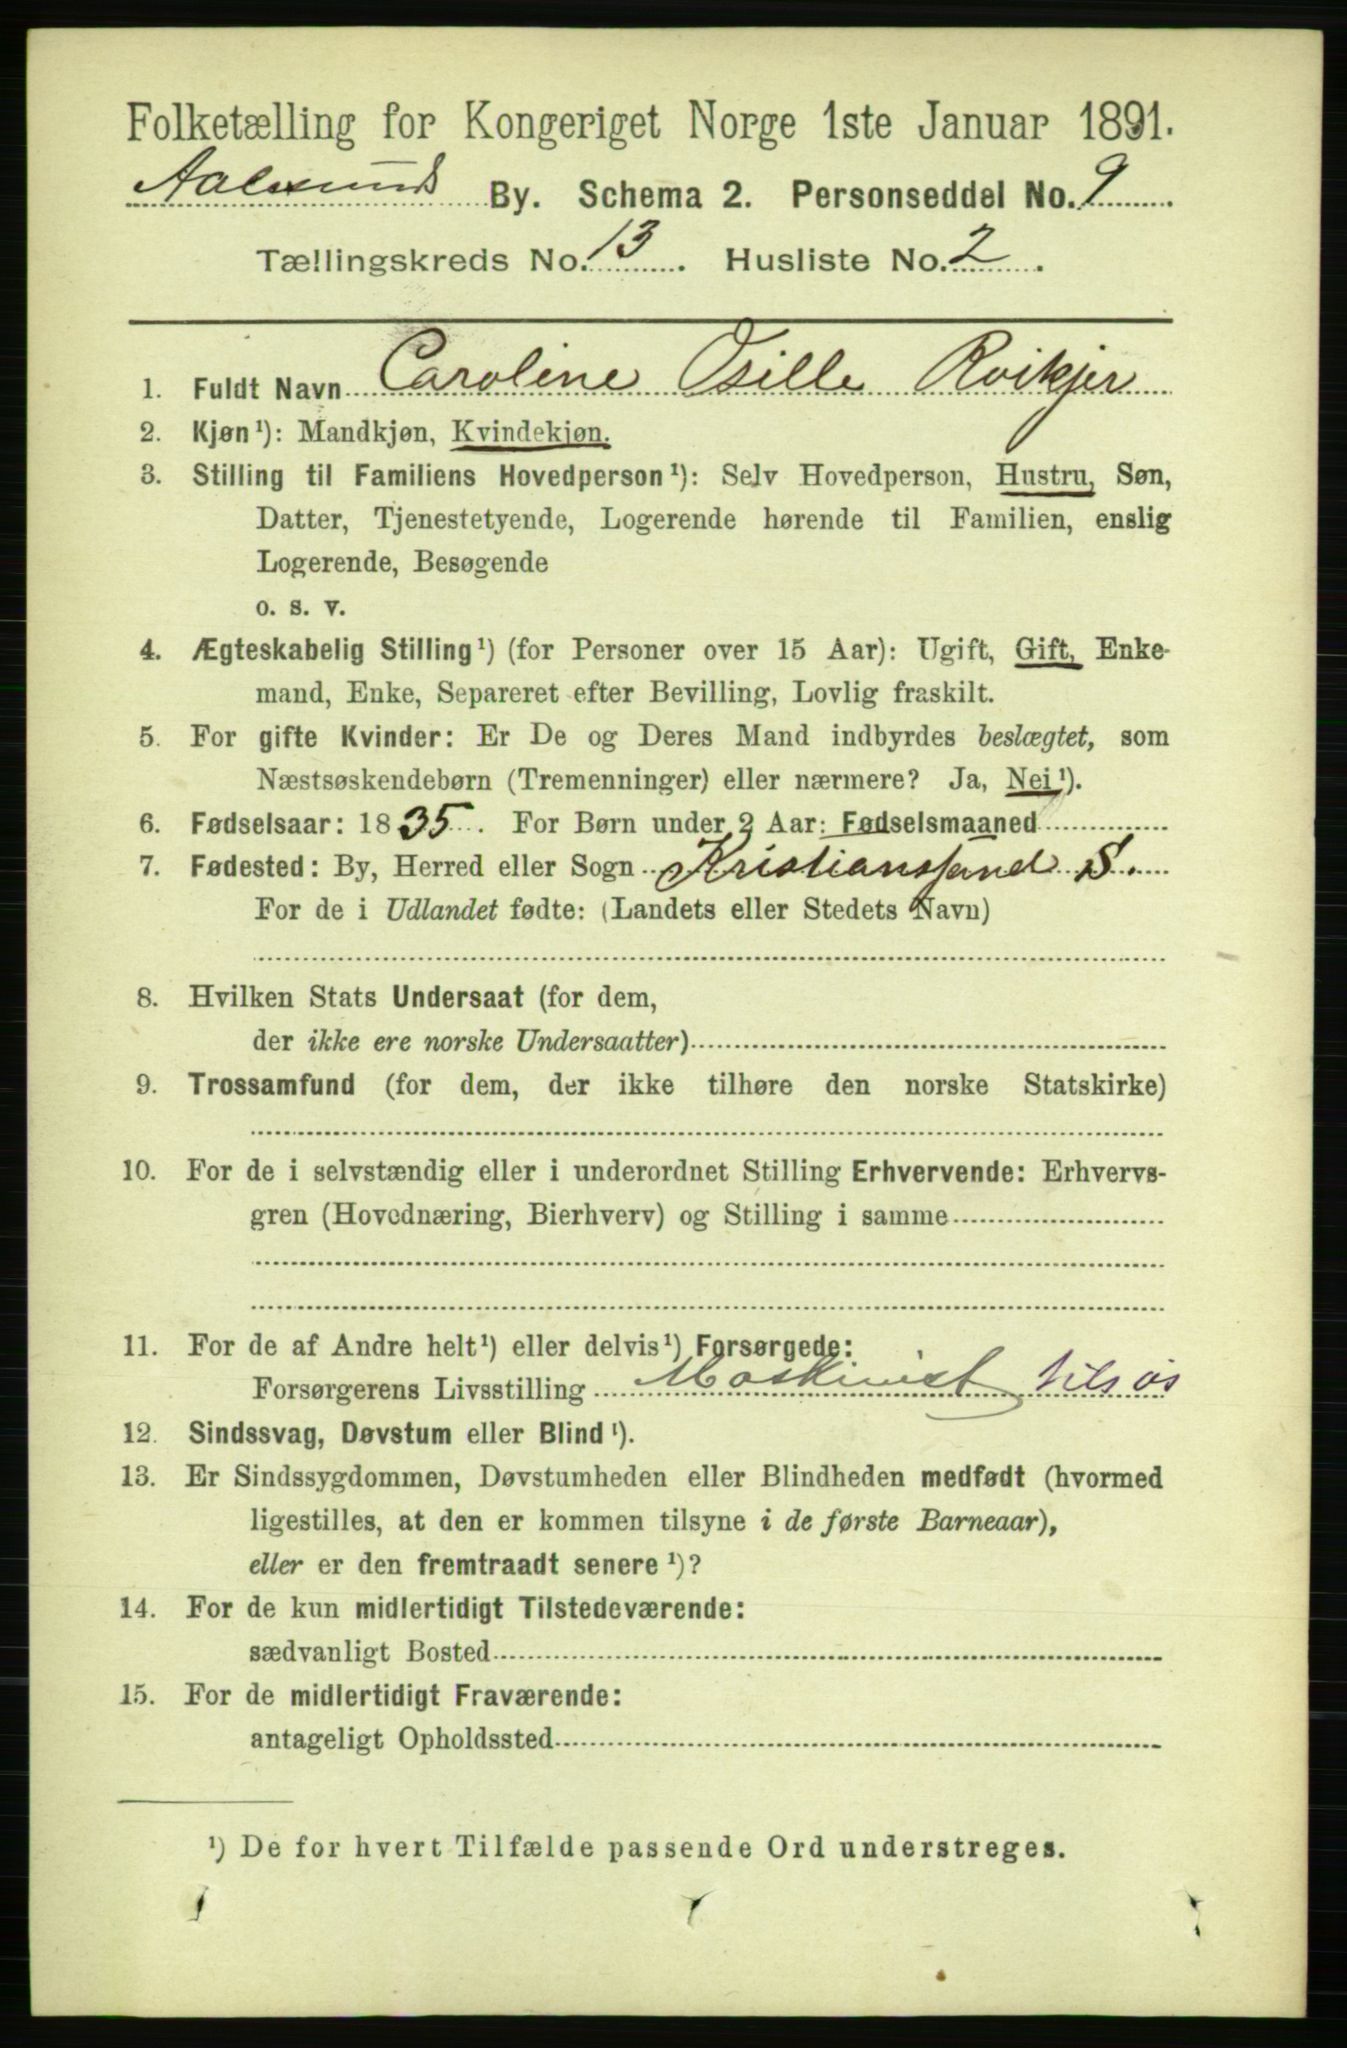 Folketælling for Kongeriget Norge 1ste Januar 1891.
Aalesund By. Schema 2. Personseddel No. 9
Tællingskreds No. 13. Husliste No. 2.
1. Fuldt Navn Caroline Osille Roikjer
2. Kjøn¹): Mandkjøn, Kvindekjøn.
3. Stilling til Familiens Hovedperson¹): Selv Hovedperson, Hustru, Søn,
Datter, Tjenestetyende, Logerende hørende til Familien, enslig
Logerende, Besøgende
o. s. v.
4. Ægteskabelig Stilling¹) (for Personer over 15 Aar): Ugift, Gift, Enke-
mand, Enke, Separeret efter Bevilling, Lovlig fraskilt.
5. For gifte Kvinder: Er De og Deres Mand indbyrdes beslægtet, som
Næstsøskendebørn (Tremenninger) eller nærmere? Ja, Nei¹).
6. Fødselsaar: 1835. For Børn under 2 Aar: Fødselsmaaned
7. Fødested: By, Herred eller Sogn Kristianssand S.
For de i Udlandet fødte: (Landets eller Stedets Navn)
8. Hvilken Stats Undersaat (for dem,
der ikke ere norske Undersaatter)
9. Trossamfund (for dem, der ikke tilhøre den norske Statskirke)
10. For de i selvstændig eller i underordnet Stilling Erhvervende: Erhvervs-
gren (Hovednæring, Bierhverv) og Stilling i samme
11. For de af Andre helt¹) eller delvis¹) Forsørgede:
Forsørgerens Livsstilling Maskinist tilsøs
12. Sindssvag, Døvstum eller Blind¹).
13. Er Sindssygdommen, Døvstumheden eller Blindheden medfødt (hvormed
ligestilles, at den er kommen tilsyne i de første Barneaar),
eller er den fremtraadt senere¹)?
14. For de kun midlertidigt Tilstedeværende:
sædvanligt Bosted
15. For de midlertidigt Fraværende:
antageligt Opholdssted
¹) De for hvert Tilfælde passende Ord understreges.